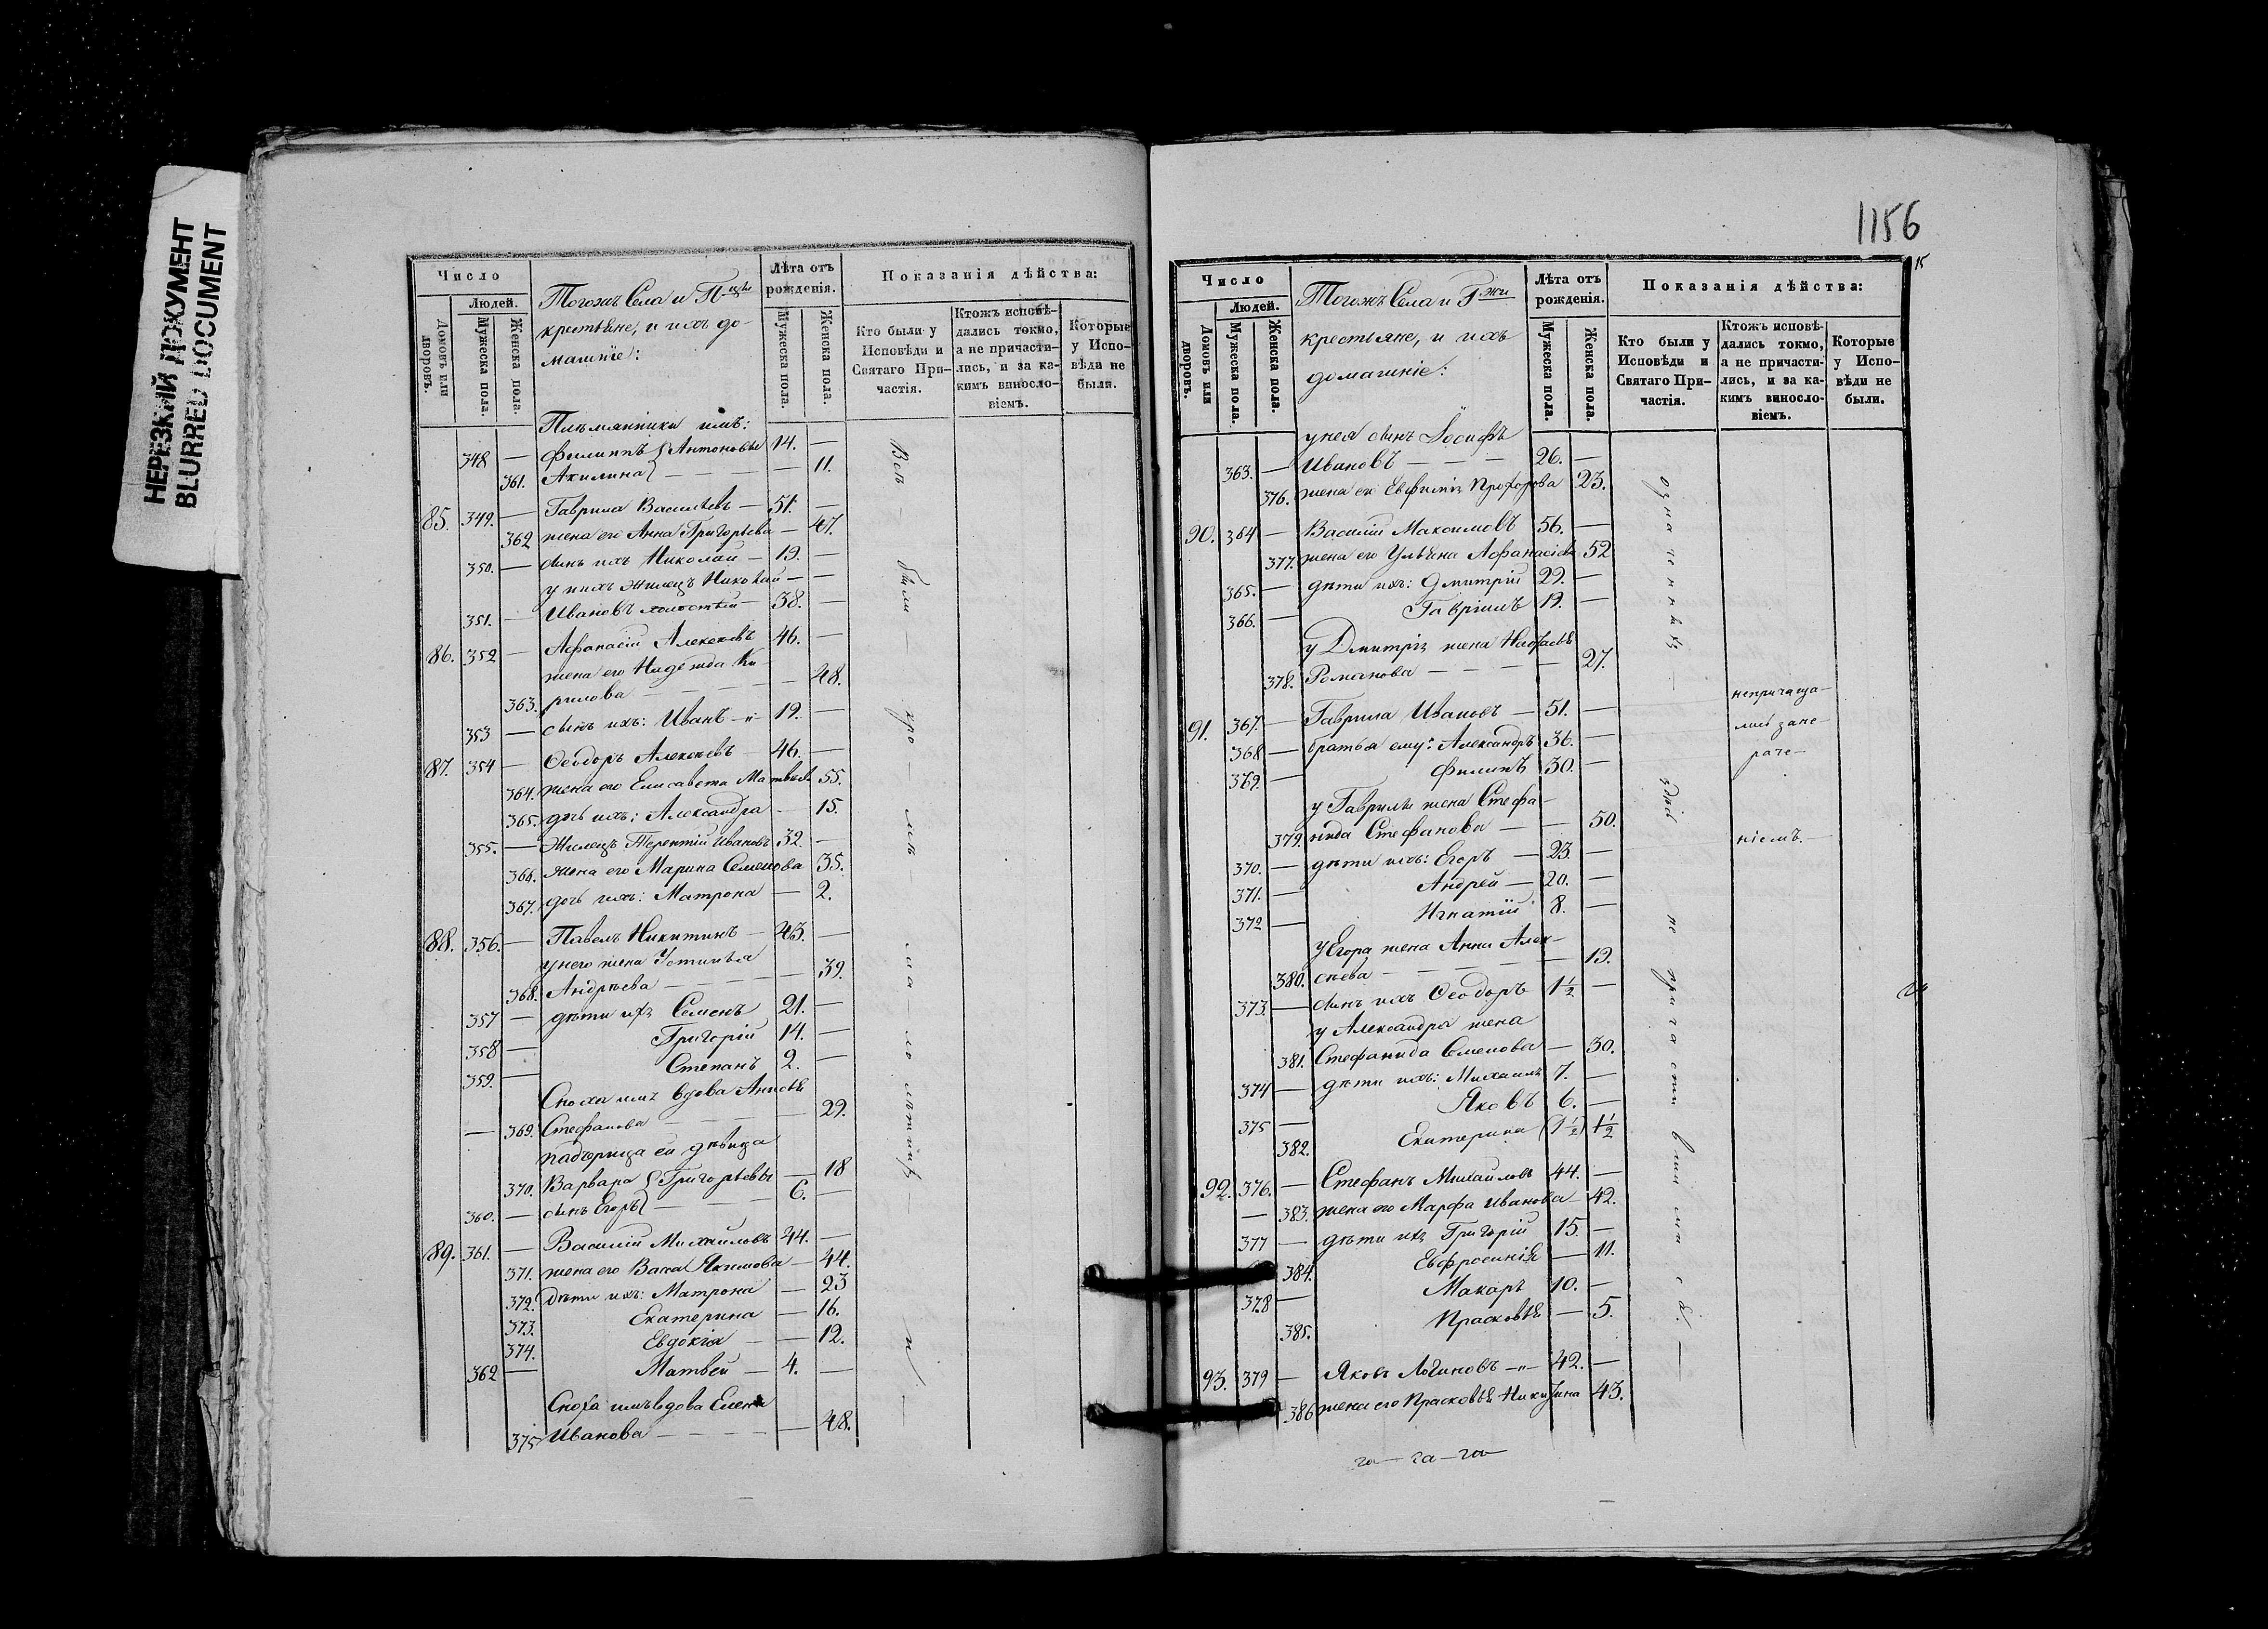 НЕРЕЗКИЙ ДОКУМЕНТ
BLURRED DOCUMENT
Число
Людей.
Домовъ или дворовъ.
Мужеска пола.
Женска пола.
Тогожъ Села и
крестьяне, и ихъ до-
машніе:
Лѣта отъ рожденія.
Мужеска пола.
Женска пола.
Показанія дѣйства:
Кто были у Исповѣди и Святаго Причастія.
Ктожъ исповѣдались токмо, а не причастились, и за какимъ винословіемъ.
Которые у Исповѣди не были.
Племянники имъ:
348 — Филиппъ } Антоновы 14. —
361. Акилина } — — 11.
85. 349. — Гаврила Васильевъ — 51. —
362 жена его Анна Григорьева — 47.
350. — сынъ ихъ Николай — 19. —
у нихъ жилецъ Николай — —
351. — Ивановъ холостый — 38. —
86. 352 — Афанасій Алексѣевъ 46. —
жена его Надежда Ки
363. рилова — — — 48.
353 — сынъ ихъ: Иванъ —"— 19. —
87. 354 — Ѳеодоръ Алексѣевъ — 46. —
364. жена его Елисавета Матвѣева 55.
365. дчь ихъ: Александра — 15.
355. — Жилецъ Терентій Ивановъ 32. —
366. жена его Марина Семенова 35.
367. дочь ихъ: Матрона — 2.
88. 356. — Павелъ Никитинъ — 43. —
у него жена Устинья
368. Андрѣева — — — 39.
357 — дѣти ихъ Семенъ 21. —
358 — Григорій 14. —
359. — Степанъ 2. —
Сноха имъ вдова Анисья
— 369. Стефанова — — — 29.
падчерица ей дѣвица
370. Варвара } Григорьевы — 18
360. — сынъ Егоръ } — — 6. —
89. 361. — Василій Михайловъ 44. —
371. жена его Васса Якимова — 44.
372. дѣти ихъ: Матрона — 23
373. Екатерина — 16.
374. Евдокія — — 12.
362 — Матвей — 4. —
Сноха имъ вдова Елена
375 Иванова — — — — 48.
Всѣ — были —
1156
15
Число
Людей.
Домовъ или дворовъ.
Мужеска пола.
Женска пола.
Тогожъ Села и Гжи
крестьяне, и ихъ
домашніе:
Лѣта отъ рожденія.
Мужеска пола.
Женска пола.
Показанія дѣйства:
Кто были у Исповѣди и Святаго Причастія.
Ктожъ исповѣдались токмо, а не причастились, и за какимъ винословіемъ.
Которые у Исповѣди не были.
у нея сынъ Іосифъ
363. — Ивановъ — — — 26. —
376. жена его Евфимія Прохорова 23.
90. 364 — Василій Максимовъ 56. —
377. жена его Ульяна Афанасіева 52
365. — дѣти ихъ: Дмитрій 29. —
366. — Гавріилъ 19. —
у Дмитрія жена Настасья
378. Романова — — — — 27.
91. 367. — Гаврила Ивановъ — 51. —
368 — братья ему: Александръ 36. —
369. — Филипъ 30. —
у Гаврилы жена Стефа-
379. нида Стефанова — — 50.
370. — дѣти ихъ: Егоръ — 23. —
371. — Андрей — 20. —
372 — Игнатій 8. —
у Егора жена Анна Алек-
380. сѣева — — — — 19.
373. — сынъ ихъ Ѳеодоръ 1½ —
у Александра жена
381. Стефанида Семенова — 30.
374 — дѣти ихъ: Михаилъ 7. —
375 — Яковъ 6. —
382. Екатерина (1½) 1½
92. 376. — Стефанъ Михайловъ 44. —
— 383. жена его Марфа Иванова 42.
377 — дѣти ихъ Григорій 15. —
384. Евфросинія — 11.
378 — Макаръ 10. —
385. Прасковья — 5.
93. 379 — Яковъ Логиновъ —"— 42. —
386 жена его Прасковья Никитина 43.
непричаща-
лись зане-
раче-
ніемъ. —